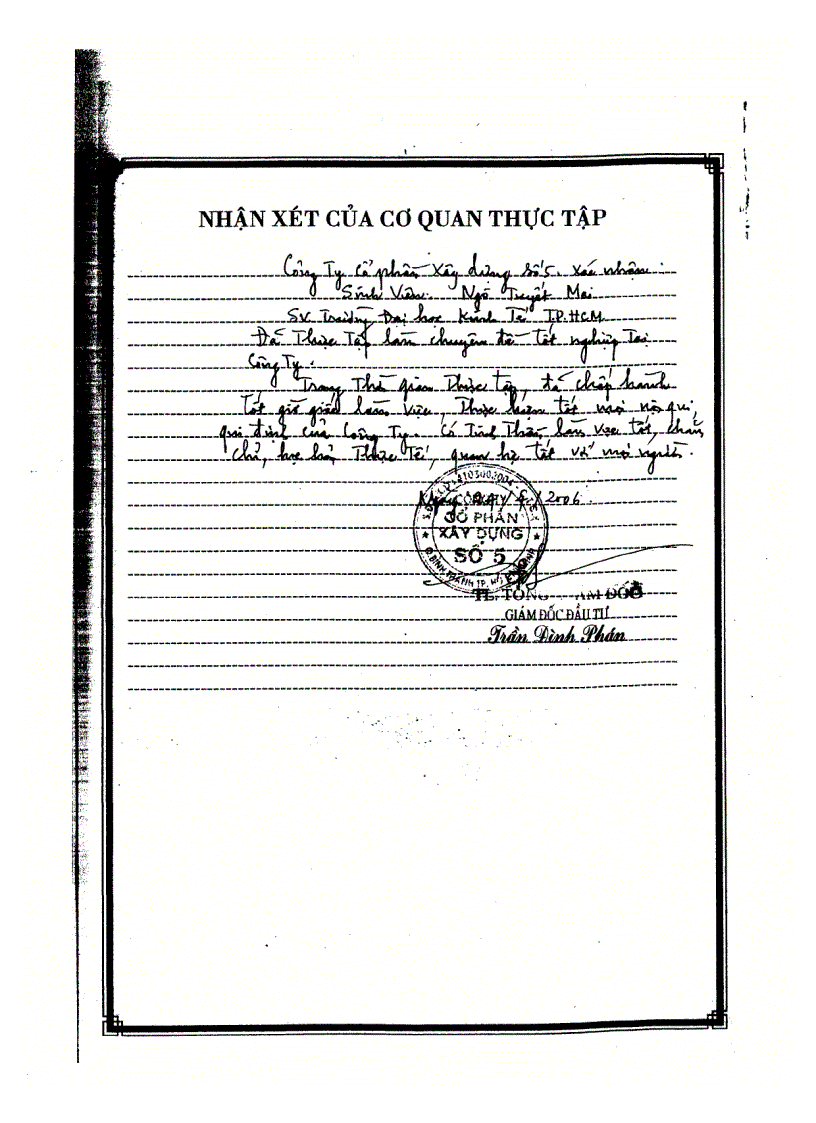 NHẬN XÉT CỦA CƠ QUAN THỰC TẬP
Công Ty Cổ phần Xây dựng Số 5. Xác nhận:
Sinh Viên: Ngô Tuyết Mai
SV Trường Đại học Kinh Tế TP.HCM
Đã Thực Tập làm chuyên đề tốt nghiệp Tại
Công Ty.
Trong Thời gian Thực tập, đã chấp hành
Tốt giờ giấc làm việc, Thực hiện tốt mọi nội qui,
qui định của Công Ty. Có Tinh Thần làm việc tốt, chăm
chỉ, học hỏi Thực Tế, quan hệ tốt với mọi người.
Ngày /5/2006
4103002004
CÔNG TY
CỔ PHẦN
XÂY DỰNG
SỐ 5
Q.BÌNH THẠNH TP. HỒ
TL. TỔNG GIÁM ĐỐC
GIÁM ĐỐC ĐẦU TƯ
Trần Đình Phán